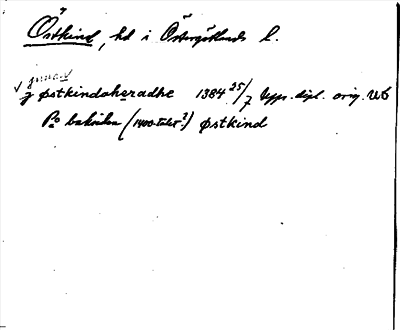 Östkind, hd i Östergötlands l.
innan
j østkindahæradhe 1384 25/7 Upps. dipl. orig. UB
På baksidan (1400-talet?) østkind